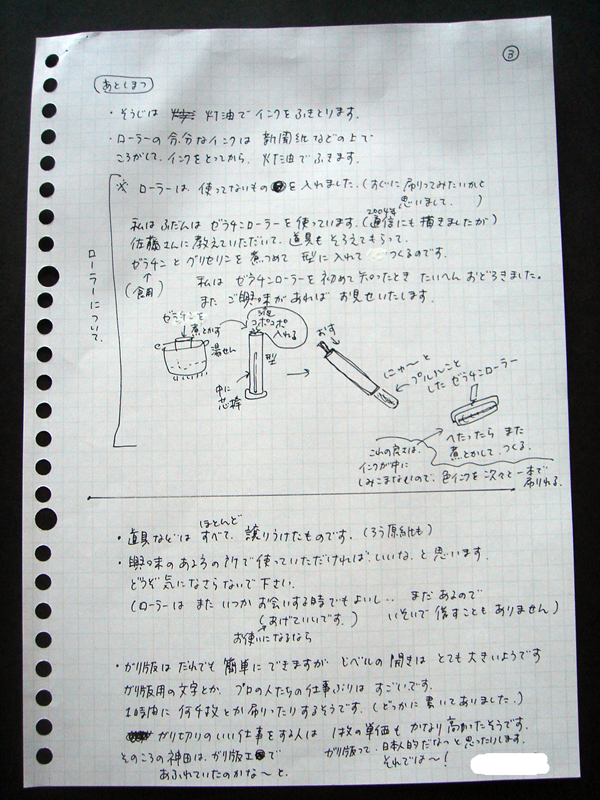 ③
あとしまつ
・そうじは 灯油でインクをふきとります。
・ローラーの余分なインクは 新聞紙などの上で
ころがして、インクをとってから、灯油でふきます。
ローラーについて
※ ローラーは 使ってないものを入れました。(すぐに刷ってみたいかと
思いまして。)
私はふだんは ゼラチンローラーを使っています。(通信にも描きましたが)
2004年
佐藤さんに教えていただいて、道具もそろえてもらって、
ゼラチンとグリセリンを煮つめて 型に入れて つくるのです。
(食用)
私は ゼラチンローラーを初めて知ったとき たいへん おどろきました。
また ご興味があれば お見せいたします。
ゼラチンを
煮とかす
湯せん
液
コポコポ
入れる
型
中に
芯棒
おす
にゅ〜と
プルルンとこ
した ゼラチンローラー
へたったら また
煮とかして、つくる。
これの良さは、
インクが中に
しみこまないので、色インクを次々と一本で
刷れる。
・道具などは ほとんど すべて、譲りうけたものです。(ろう原紙も)
・興味のある方の所で使っていただければ、いいな、と思います。
どうぞ気になさらないで下さい。
(ローラーは また いつか お会いする時でもよいし、、 まだあるので
(あげていいです。) いそいで 借すことも ありません)
お使いになるなら
・ガリ版は だれでも 簡単に できますが レベルの開きは とても大きいようです
ガリ版用の文字とか、プロの人たちの仕事ぶりは すごいです。
1時間に 何千枚とか 刷りったりするそうです。(どっかに 書いてありました。)
ガリ切りの いい仕事をする人は 1枚の単価も かなり高かったそうです。
そのころの神田は、ガリ版工で
あふれていたのかな〜と、
ガリ版って、日本人的だなっと思ったりします。
それでは〜!